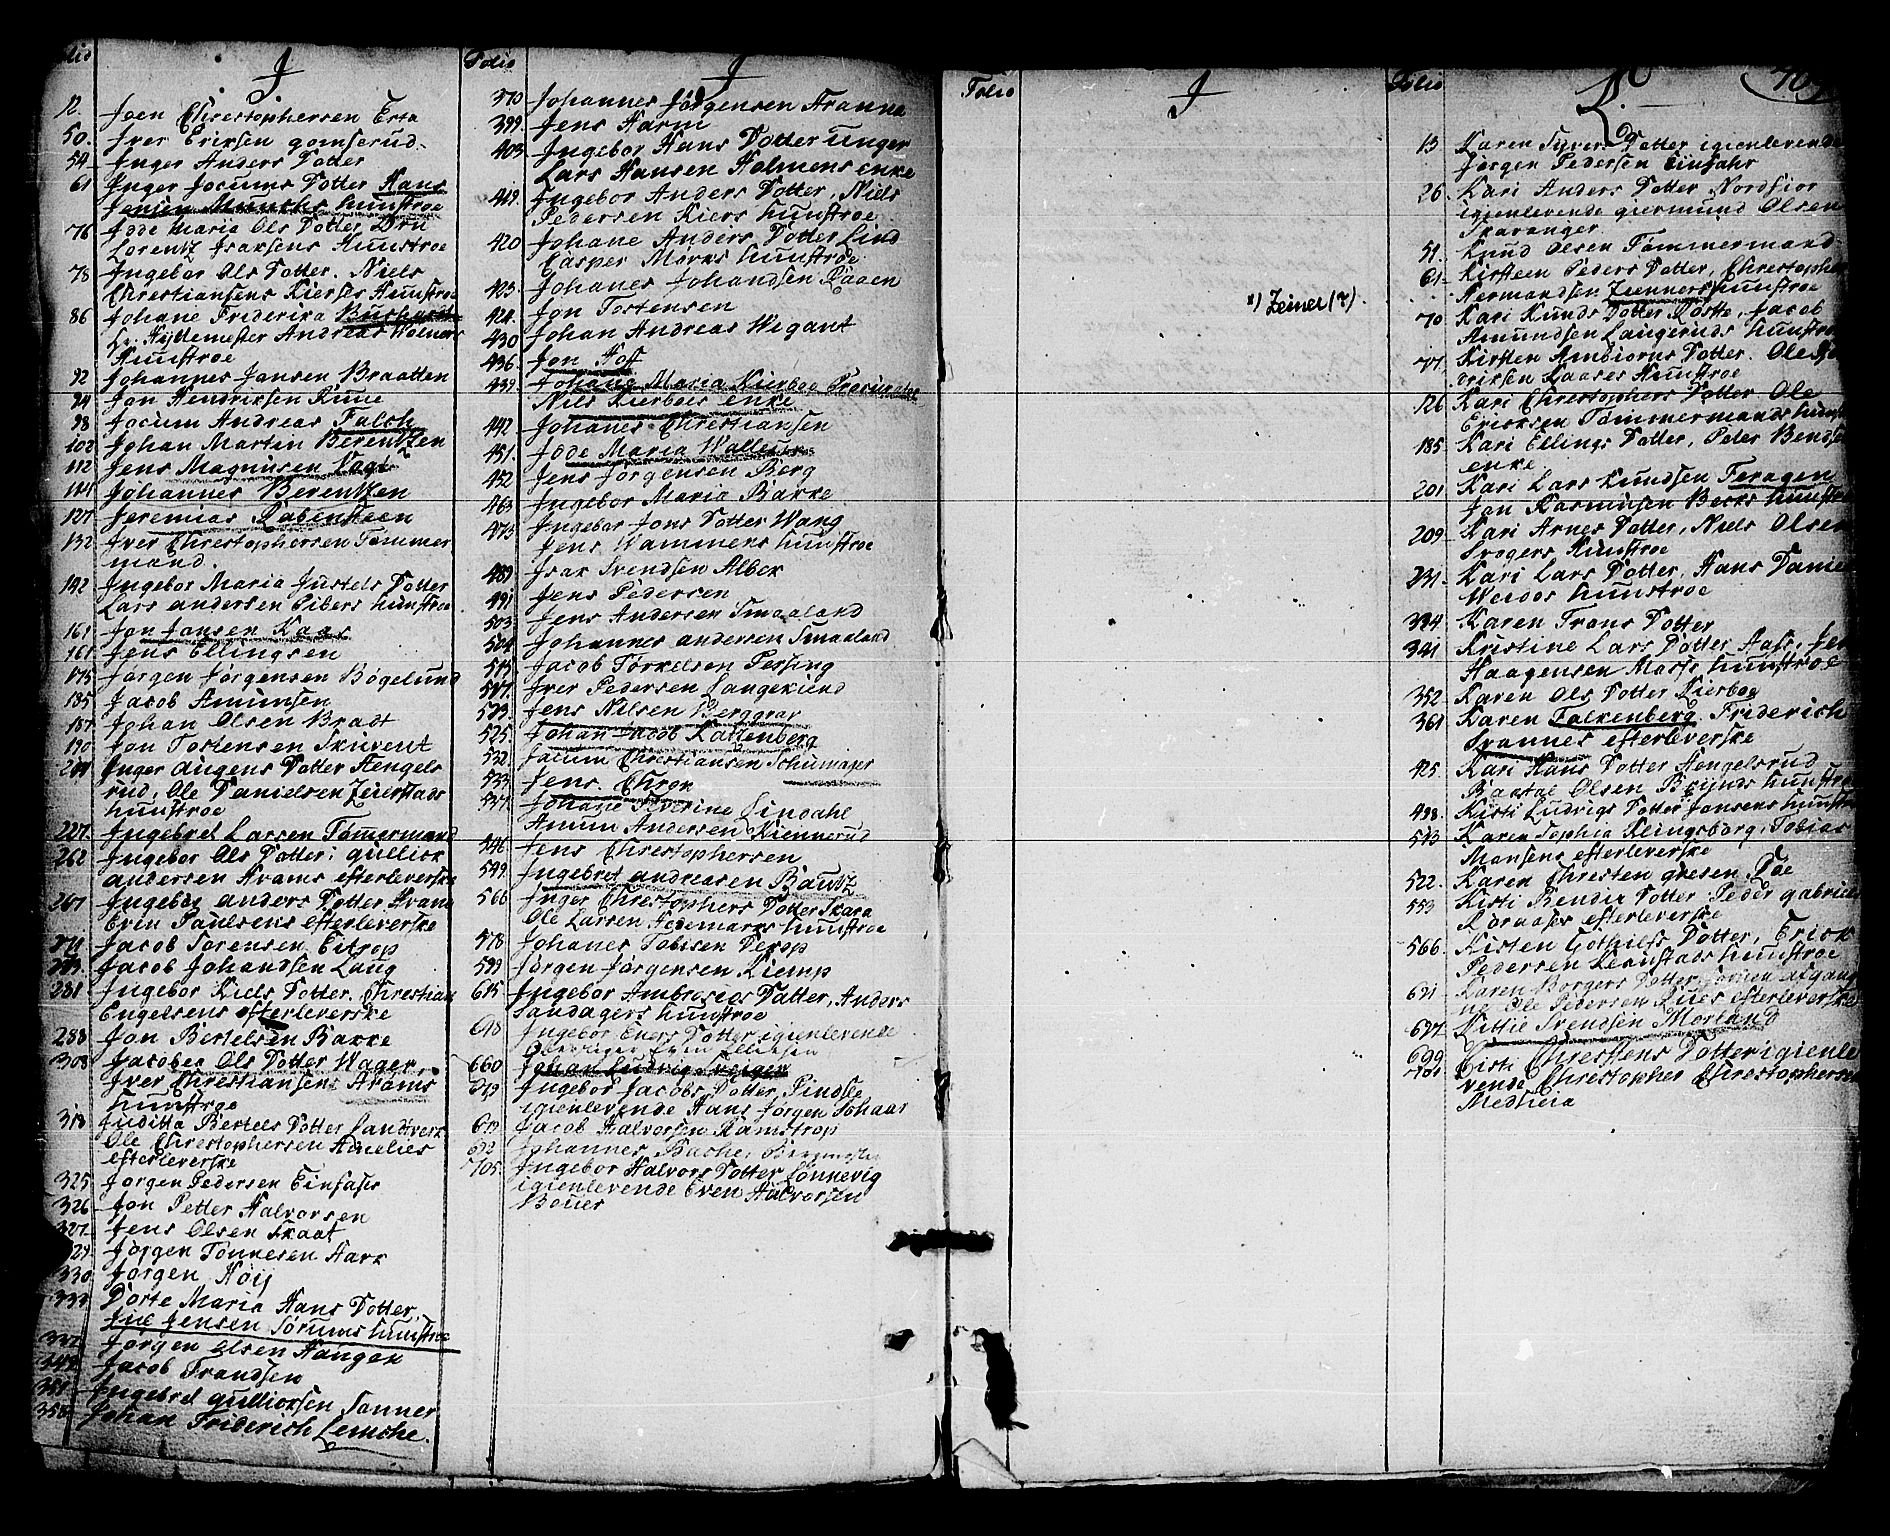 Folio
J
12. Joen Chrestophersen Erta
50. Iver Ericksen gomserud
54. Inger Anders Dotter
61 Inger Jocums Dotter Hans
Jensen Munchs huustroe
76 Idde Maria Ols Dotter Dru
Lorentz Isaksens Huustroe
78 Ingebor Ols Dotter. Niels
Chrestiansens Kierses Huustroe
86 Johane Friderica Buchardt
Hyttemester Andreas Wolmars
Huustroe
92 Johannes Jansen Braatten
94 Jon Hendriksen Ruue
98 Jocum Andreas Falch
102 Johan Martin Berentzen
112 Jens Magnussen Vogt
114 Johannes Berentzen
127 Jeremias Rabensteen
132 Iver Chrestophersen Tømmer
mand.
142 Ingebor Maria Justels Dotter
Lars andersen Pibers huustroe
161 Jon Jansen Kaas
161 Jens Ellingsen
175 Jørgen Jørgensen Bøgelund
185 Jacob Amunsen
187 Johan Olsen Bradt
190 Jon Tostensen Skuvent
204 Inger augens Dotter Hengels
rud, Ole Danielsen Zeierstads
huustroe
227. Ingebret Larsen Tømermand
262 Ingebor Ols Dotter; gullick
andersen Arams efterleverske
267 Ingebor anders Dotter
Even Paulsens efterleverske
271 Jacob Sørensen Eitrop
273. Jacob Johandsen Laug
281 Ingebor Niels Dotter. Chrestian
Engelsens efterleverske
288 Jon Bertelsen Bakke
308 Jacobea Ols Dotter Wager,
Iver Chrestiansens Arams
huustroe
318 Juditta Bertels Dotter Landverk
Ole Chrestophersen Amelies
efterleverske
325 Jørgen Pedersen Einfalir
326 Jon Petter Halvorsen
327. Jens Olsen Skaat
329 Jørgen Tønnesen Hars
330 Jørgen Høij
333 Dorte Maria Hans Dotter,
Jens Jensen Sørums huustroe
337. Jørgen Olsen Haugen
342 Jacob Frandsen
351 Ingebret gulliorsen Sanner
358 Johan Friderich Lemche.
Folio
J
370 Johannes Jørgensen Aranna
399. Jens Harm
403 Ingebor Hans Dotter Unger
Lars Hansen Holmens enke
419. Ingebor Anders Dotter, Niels
Pedersen Kiers huustroe
420 Johane Anders Dotter Lind
Casper Mørks huustroe
423. Johanes Johandsen Paaen
424. Jon Tostensen
430 Johan Andreas Wigant
436. Jon Hoff
439. Johane Maria Kierboe
Nils Kierboes enke
442 Johanes Chrestiansen
451. Idde Maria Walleur
452 Jens Jørgensen Berg
463 Ingebor Maria Bakke
473 Ingebor Jons Dotter Wang
Jens Wammens huustroe
489 Isak Svendsen Albek
491 Jens Pedersen
503 Jens Andersen Smaaland
504 Johannes andersen Smaaland
515 Jacob Torkelsen Persing
517. Iver Pedersen Langekiend
523. Jens Nilsen Berggrav
525. Johan Jacob Kattenberg
532 Jacum Chrestiansen Schumager
533 Jens Chron
537 Johane Severine Lindahl
Amum Andersen Kiennerud
546 Jens Chrestophersen
549. Ingebret andreasen Bautz
566 Inger Chrestophers Dotter Skara
Ole Larsen Hedemarks huustroe
578 Johanes Tobisen Derop
599 Jørgen Jørgensen Kiemp
615 Ingebor Ambrosies Dotter, Anders
Sandagers huustroe
618 Ingebor Evers Dotter igienlevende
Oberstiger Even Ellefsen
660 Johan Ludvig
679 Ingebor Jacobs Dotter Pindsle
igienlevende Hans Jørgen Schaar
679 Jacob Halvorsen Ramstrop
692 Johannes Bache, Bergmester
705. Ingebor Halvors Dotter Lønnevig
igienlevende Even Halvorsen
Bouer
Folio
J
x) Zeiner (?).
Folio
K
13 Karen Syvers Dotter igienlevende
Jørgen Pedersen Einfahr
26 Kari Anders Dotter Nordsior
igienlevende giermund Olsen
Skavanger
51. Knud Olsen Tømmermand
61 Kirsteen Peders Dotter, Chrestopher
Hermandsen Zienners huustroe
70 Kari Knuds Dotter Loftte, Jacob
Amundsen Laugeruds huustroe
77. Kirsten Ambiorns Dotter. Ole
driksen Kaases Huustroe
126 Kari Chrestophers Dotter Ole
Ericksen Tømmermands huus
185 Kari Ellings Dotter, Peter Bendse
enke
201 Kari Lars Knudsen Feragen
Jon Rasmusen Becks huustroe
209 Kari Arnes Dotter, Niels Olsen
Progers Huustroe
231. Kari Lars Dotter, Hans Daniel
Weidos huustroe
334 Karen Frans Dotter
341 Kristine Lars Dotter Aass, Jen
Haagensen Mosse huustroe
352 Karen Ols Dotter Kierboe
361 Karen Falkenberg Friderich
Svannes efterleverske
425 Kari Hans Dotter Hengelsrud
Baltze Olsen Brynds huustroe
498. Kisti Ludvigs Dotter Jonsens huustroe
513 Karen Sophia Klingsborg, Tobias
Monsens efterleverske
522. Karen Chresten gresen Poe
553 Kisti Bendix Dotter Peder gabriels
Roraases efterleverske
566. Kisten Gothilfs Dotter, Erick
Pedersen Kernstads huustroe
631 Karen Borgers Dotter
Ole Pedersen Rues efterleverske
697. Kittil Svendsen Morland
699 Cisti Chrestens Dotter igienle
701 vende Christopher Chrestophersen
Medheia